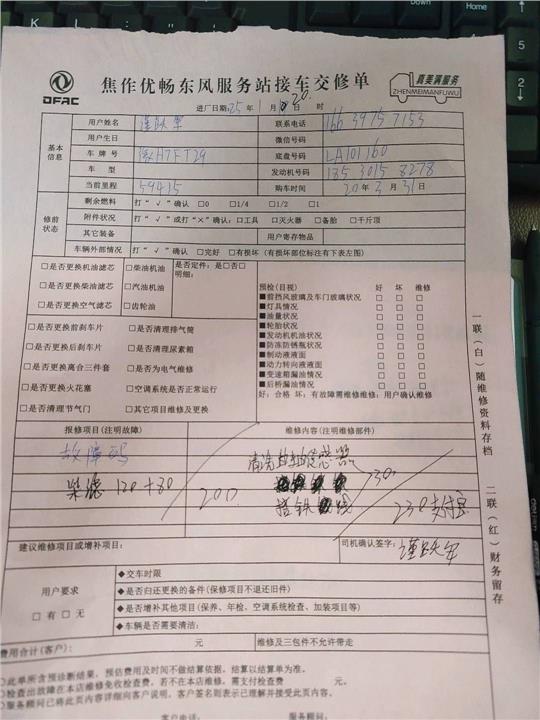 DFAC
焦作优畅东风服务站接车交修单
真美满服务
ZHENMEIMANFUWU
进厂日期:25年1月20日 时
基本信息
用户姓名 联系电话 166 3975 7153
用户生日 微信号码
车牌号 H7FT29 底盘号码 LA101160
车型 发动机号码 185 3015 8278
当前里程 59415 购车时间 20年3月31日
修前状态
剩余燃料 打“√”确认 □0 □1/4 □1/2 □1
附件状况 打“√”或打“×”确认:□工具 □灭火器 □备胎 □千斤顶
其它装备 用户寄存物品
车辆外部情况 打“√”确认 □完好 □有损坏(有损坏部位标注有下表左图)
□是否更换机油滤芯 □柴油机油 是否定件:是□否□
□是否更换柴油滤芯 □汽油机油 明细:
□是否更换空气滤芯 □齿轮油
□是否更换前刹车片 □是否清理排气筒
□是否更换后刹车片 □是否清理尿素箱
□是否更换离合三件套 □是否为电气维修
□是否更换火花塞 □空调系统是否正常运行
□是否清理节气门 □其它项目维修及更换
预检(目视) 好 坏 维修
■前挡风玻璃及车门玻璃状况 □ □ □
■灯具情况 □ □ □
■油量状况 □ □ □
■轮胎状况 □ □ □
■发动机机油状况 □ □ □
■防冻防锈瓶状况 □ □ □
■制动液液面 □ □ □
■动力转向液液面 □ □ □
■变速箱漏油情况 □ □ □
■后桥漏油情况 □ □ □
好:合格 坏:有故障需维修维修:用户确认维修
报修项目(注明故障) 维修内容(注明维修部件)
故障码 清洗 感器
柴滤 120+80 200 搭铁线 230
230支付宝
建议维修项目或增补项目: 司机确认签字:
用户要求
□有 □无
◆交车时限
◆是否归还更换的备件(保修项目不退还旧件)
◆是否增补其他项目(保养、年检、空调系统检查、加装项目等)
◆车辆是否需要清洁:
费用合计(客户): 元 维修及三包件不允许带走
○此单所含预诊断结果,预估费用及时间不做结算依据,结算以结算单为准。
○检查出故障在本店维修免收检查费,若不在本店维修,需支付检查费 元。
○服务顾问已将此页内容详细向客户说明,客户签名则表示已理解并接受此页内容。
客户电话 服务顾问:
一联(白)随维修资料存档
二联(红)财务留存